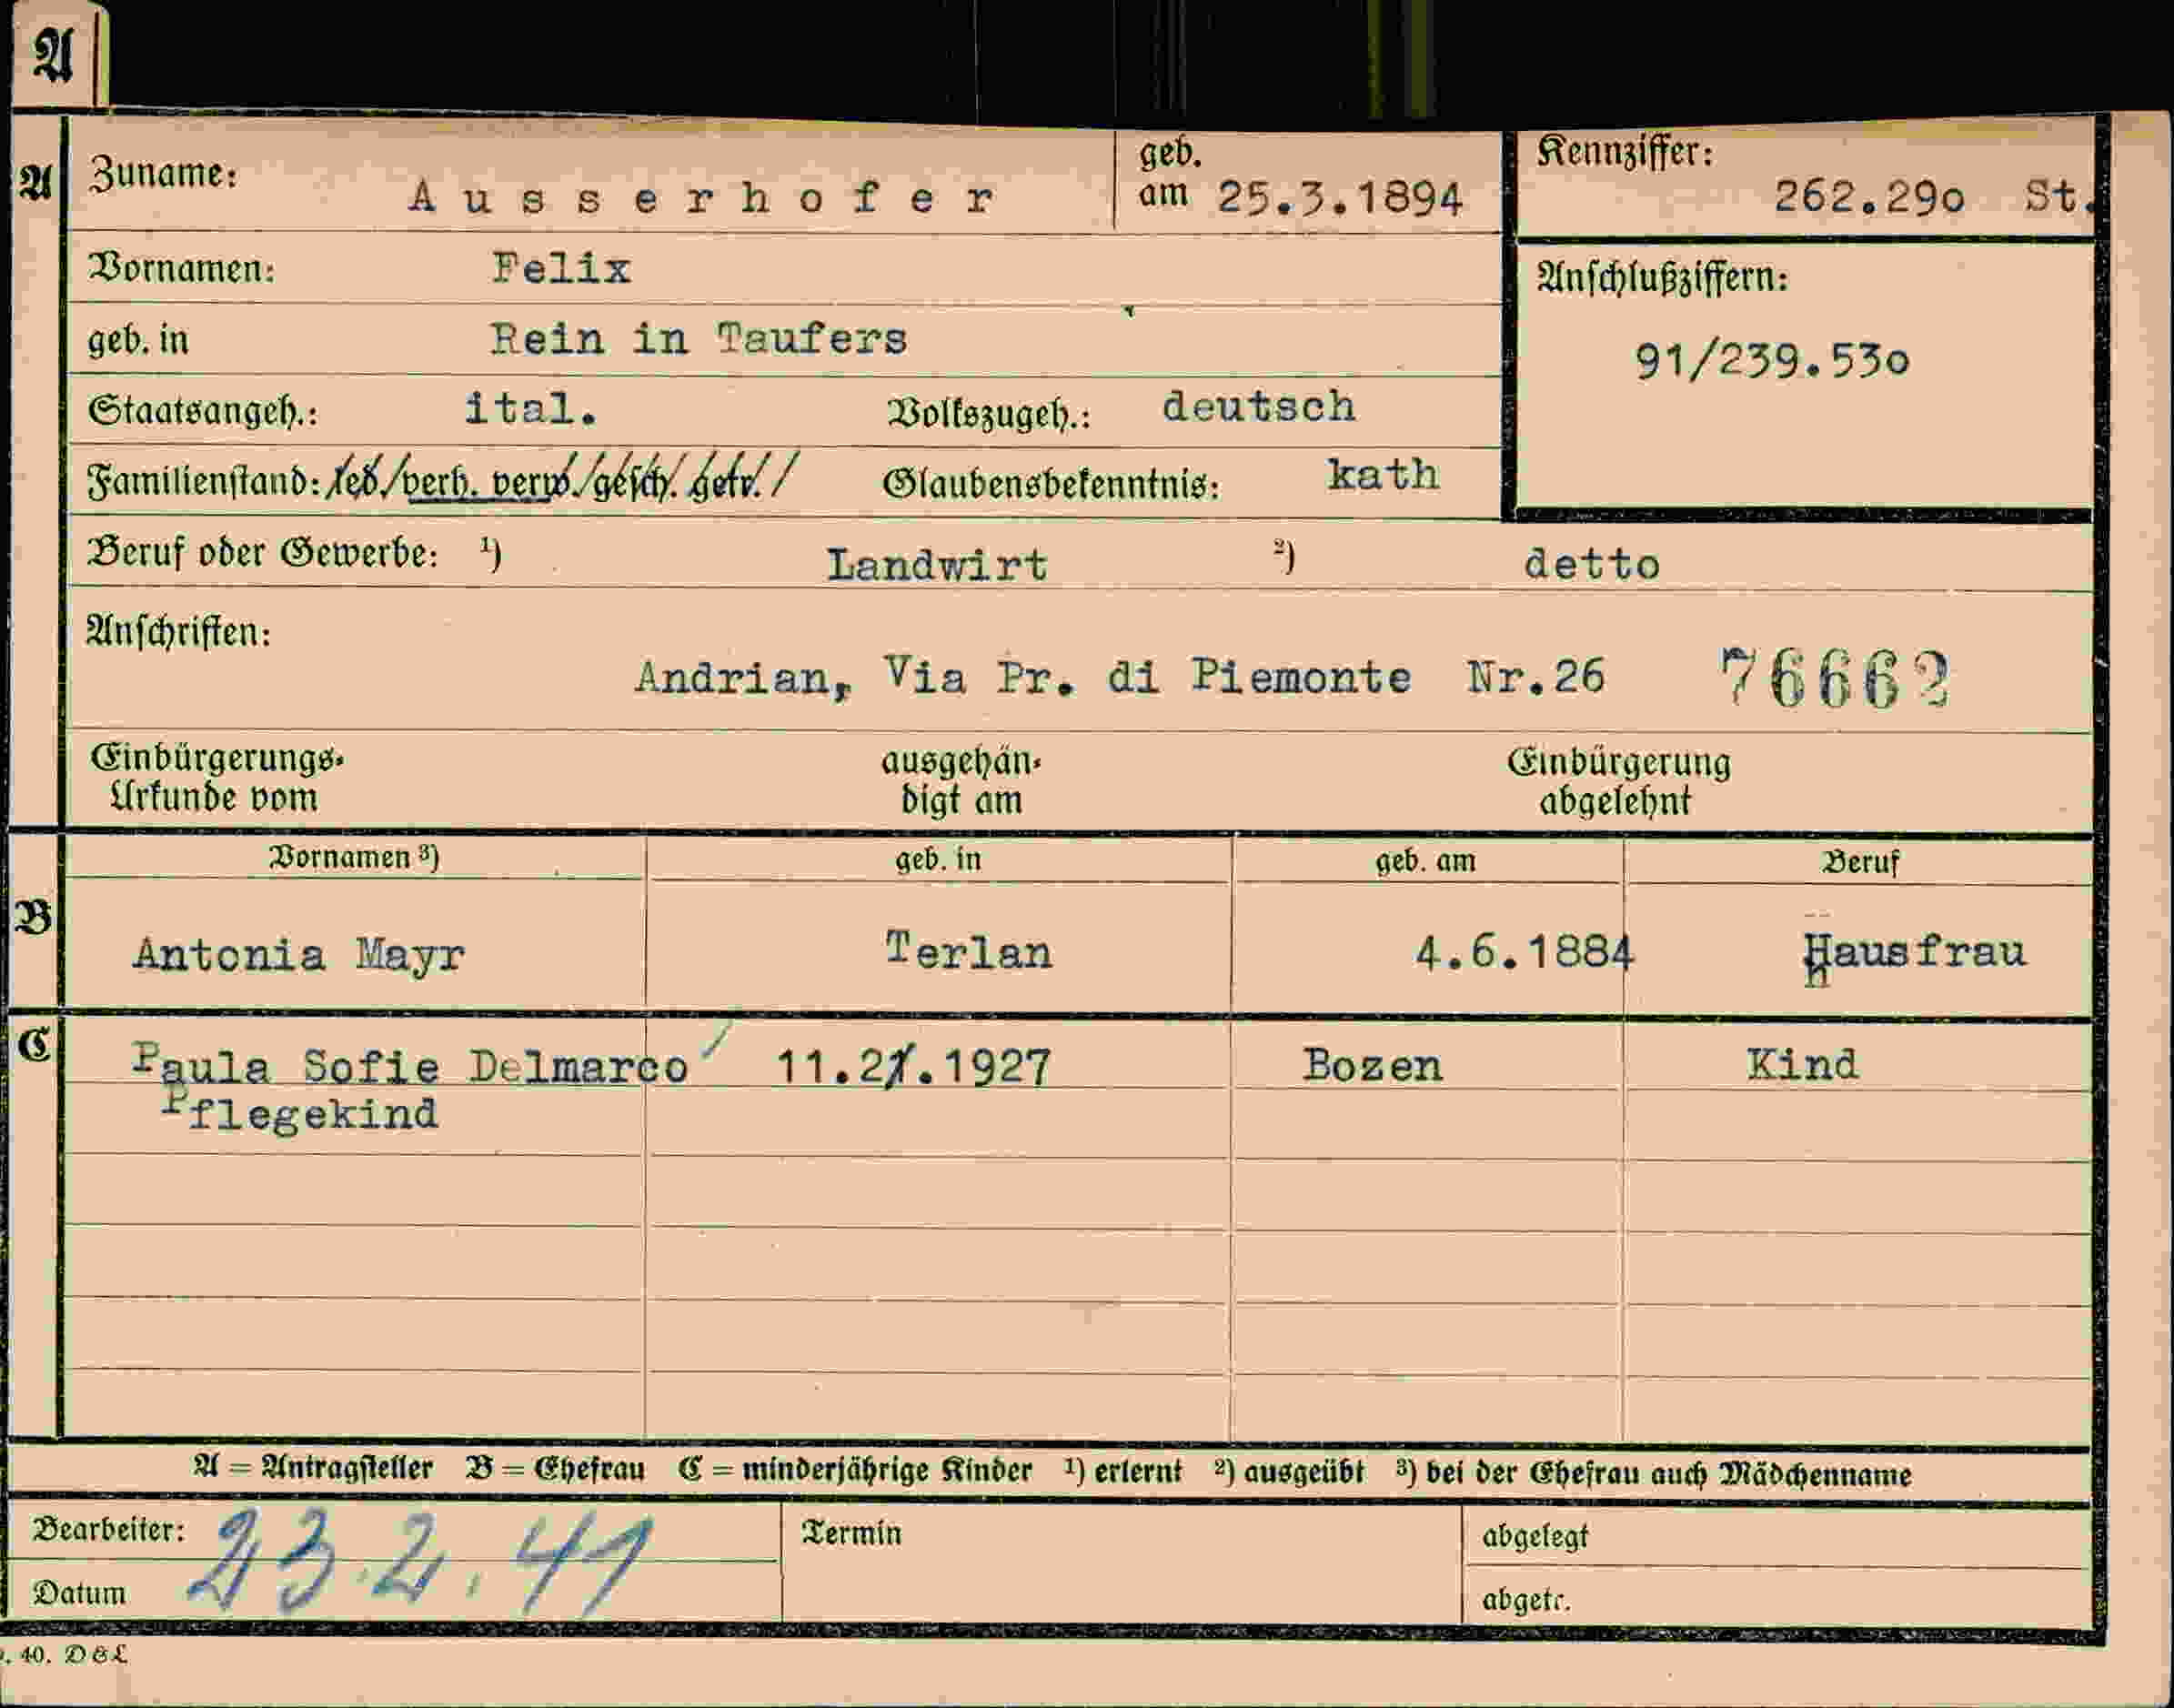 A
A
Zuname: Ausserhofer geb. am 25.3.1894 Kennziffer: 262.29o St.
Vornamen: Felix
geb. in Rein in Taufers Anschlußziffern: 91/239.53o
Staatsangeh.: ital. Volkszugeh.: deutsch
Familienstand: led./verh. verw./gesch. getr./ Glaubensbekenntnis: kath
Beruf oder Gewerbe: 1) Landwirt 2) detto
Anschriften:
Andrian, Via Pr. di Piemonte Nr.26 76662
Einbürgerungs- ausgehän- Einbürgerung
Urkunde vom digt am abgelehnt
Vornamen 3) geb. in geb. am Beruf
B
Antonia Mayr Terlan 4.6.1884 Hausfrau
C
Paula Sofie Delmarco 11.2.1927 Bozen Kind
Pflegekind
A = Antragsteller B = Ehefrau C = minderjährige Kinder 1) erlernt 2) ausgeübt 3) bei der Ehefrau auch Mädchenname
Bearbeiter: Termin abgelegt
23.2.41
Datum abgetr.
. 40. D & L